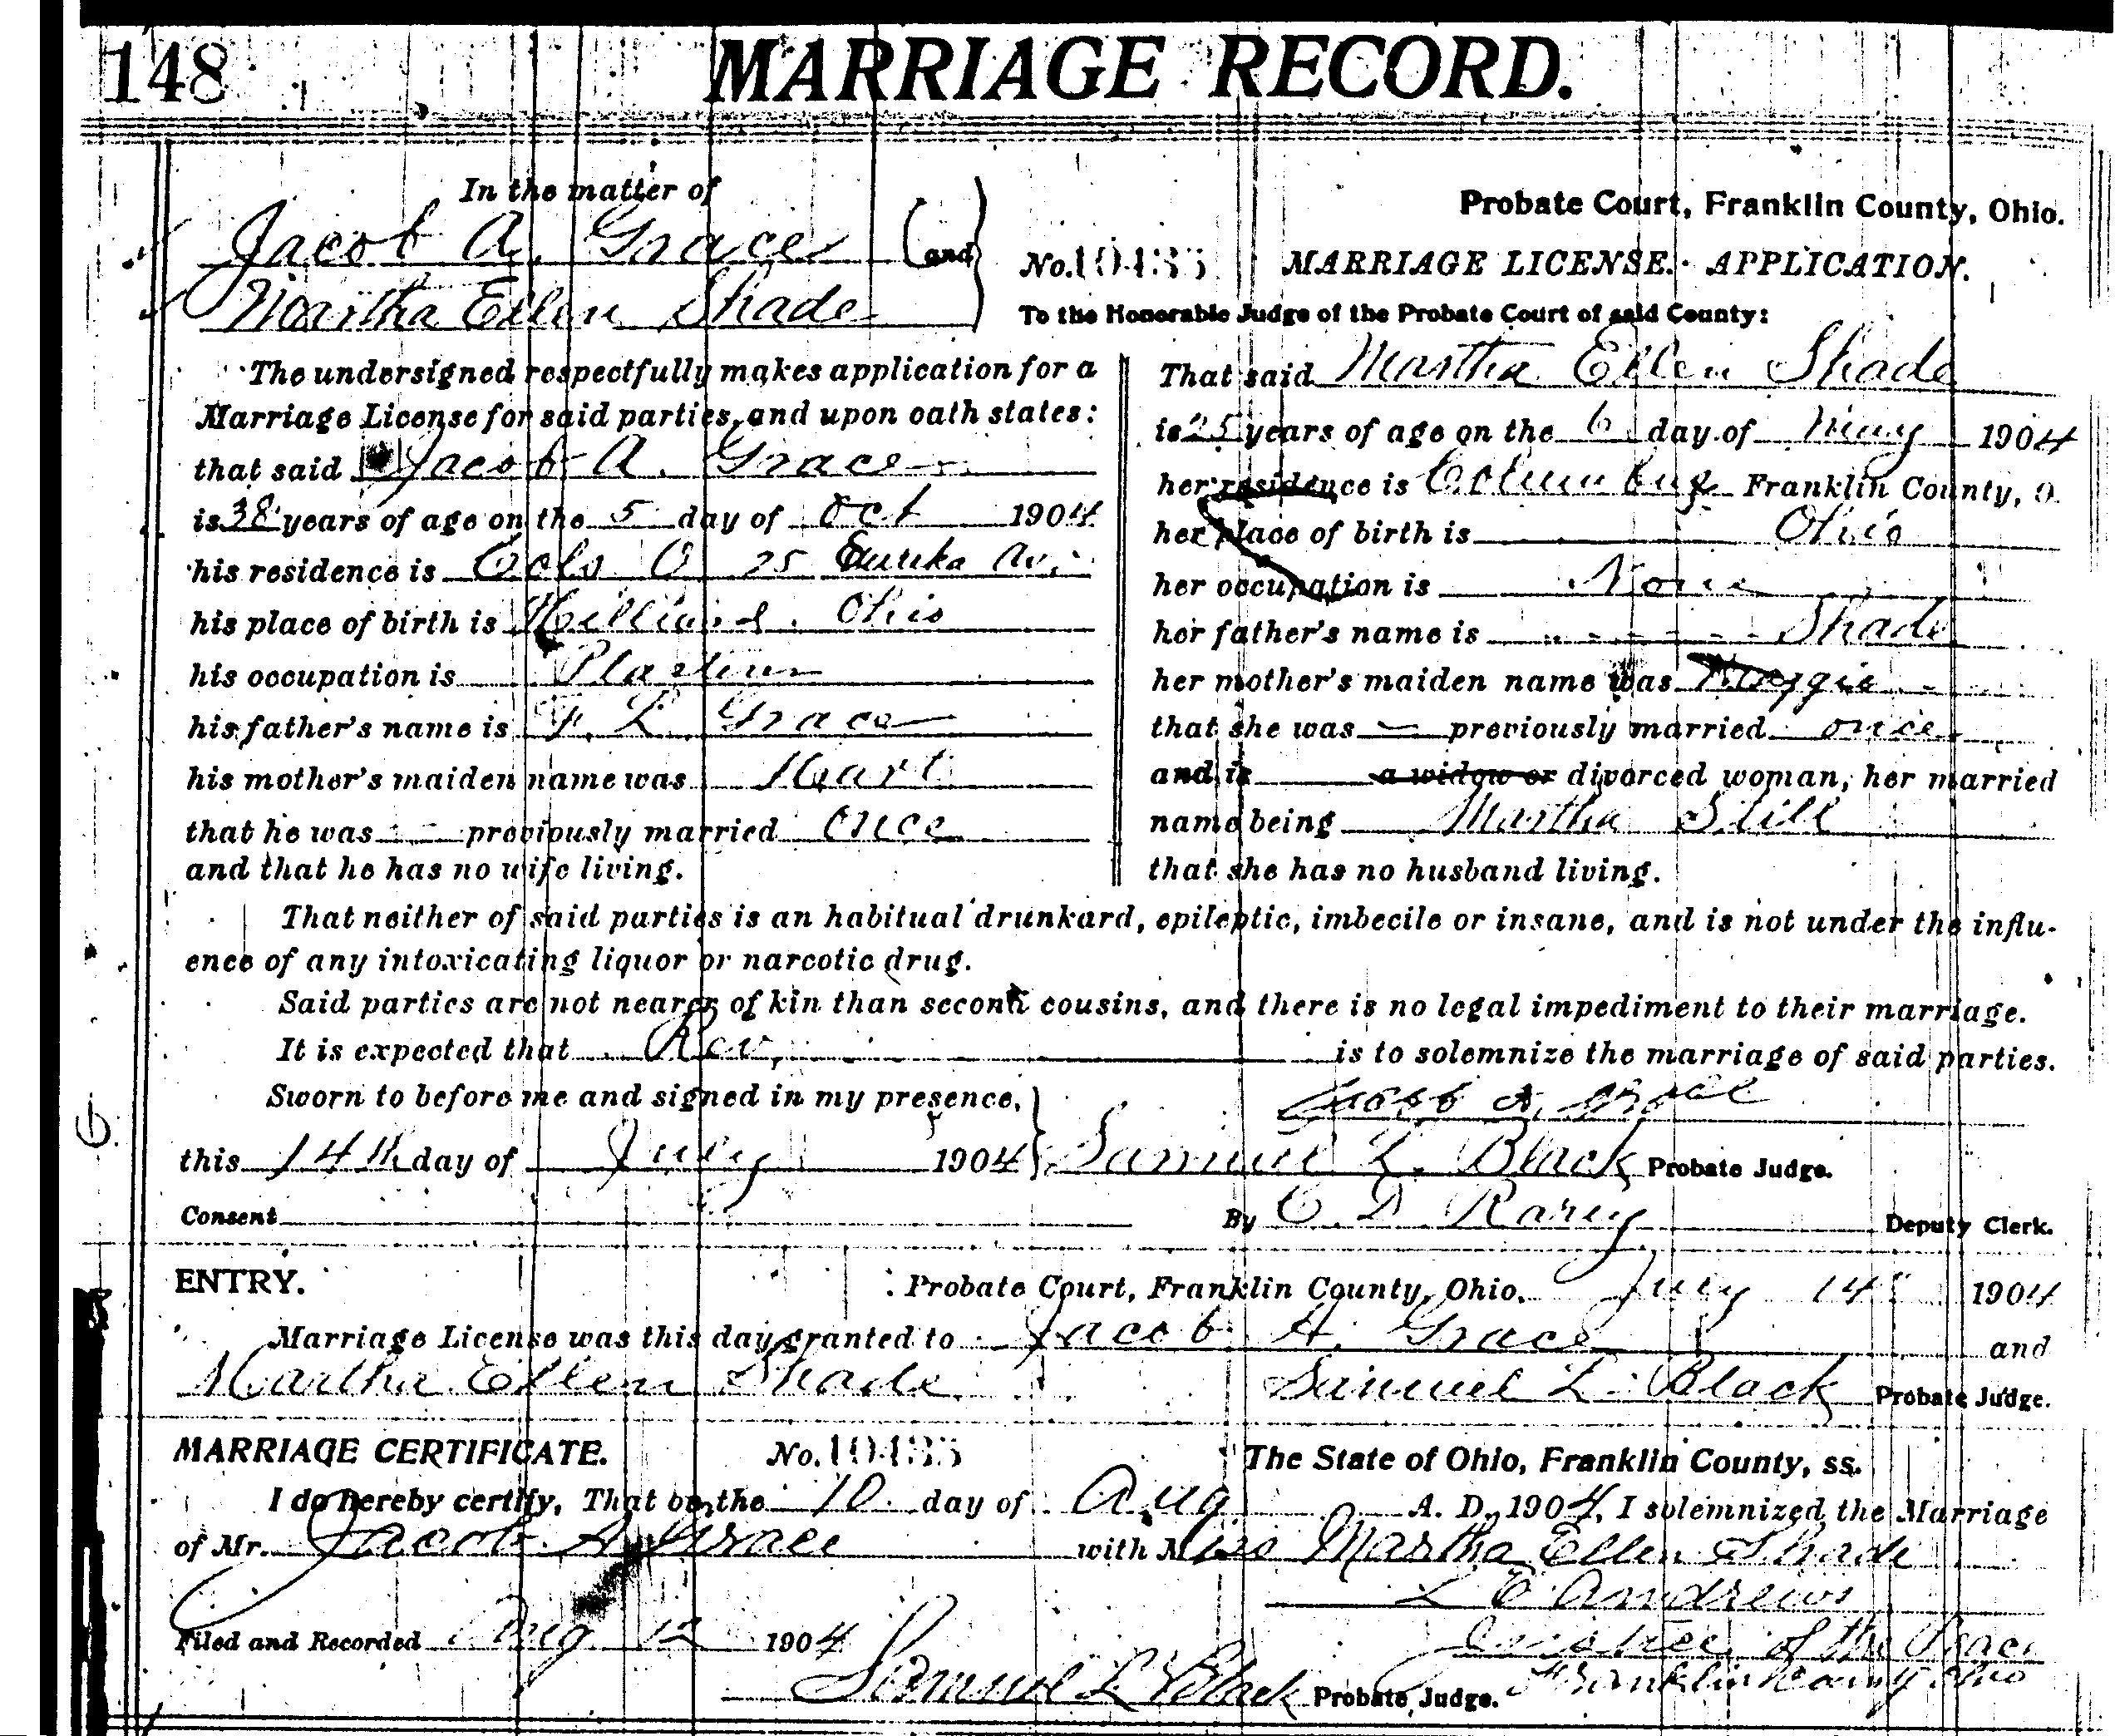 148 MARRIAGE RECORD.
In the matter of
Jacob A. Grace (and)
Martha Ellen Shade
Probate Court, Franklin County, Ohio.
No. 10435 MARRIAGE LICENSE. APPLICATION.
To the Honorable Judge of the Probate Court of said County:
The undersigned respectfully makes application for a
Marriage License for said parties, and upon oath states:
that said Jacob A. Grace
is 38 years of age on the 5 day of Oct 1904
his residence is Cols O 25 Eureka Av.
his place of birth is Hilliard, Ohio
his occupation is
his father's name is F. L. Grace
his mother's maiden name was Hart
that he was - previously married once
and that he has no wife living.
That said Martha Ellen Shade
is 25 years of age on the 6 day of May 1904
her residence is Columbus Franklin County, O.
her place of birth is Ohio
her occupation is None
her father's name is - - - - - Shade
her mother's maiden name was Maggie
that she was - previously married once
and is a widow or divorced woman, her married
name being Martha Still
that she has no husband living.
That neither of said parties is an habitual drunkard, epileptic, imbecile or insane, and is not under the influ-
ence of any intoxicating liquor or narcotic drug.
Said parties are not nearer of kin than second cousins, and there is no legal impediment to their marriage.
It is expected that Rev. is to solemnize the marriage of said parties.
Sworn to before me and signed in my presence, Jacob A. Grace
this 14th day of July 1904 Samuel L. Black Probate Judge.
Consent By C. D. Rarey Deputy Clerk.
ENTRY. Probate Court, Franklin County, Ohio, July 14 1904
Marriage License was this day granted to Jacob A. Grace and
Martha Ellen Shade Samuel L. Black Probate Judge.
MARRIAGE CERTIFICATE. No. 10435 The State of Ohio, Franklin County, ss.
I do hereby certify, That on the 10 day of Aug A. D. 1904, I solemnized the Marriage
of Mr. Jacob A. Grace with Miss Martha Ellen Shade
L E Andrews
Filed and Recorded Aug 12 1904 Justice of the Peace
Samuel L Black Probate Judge. Franklin County Ohio